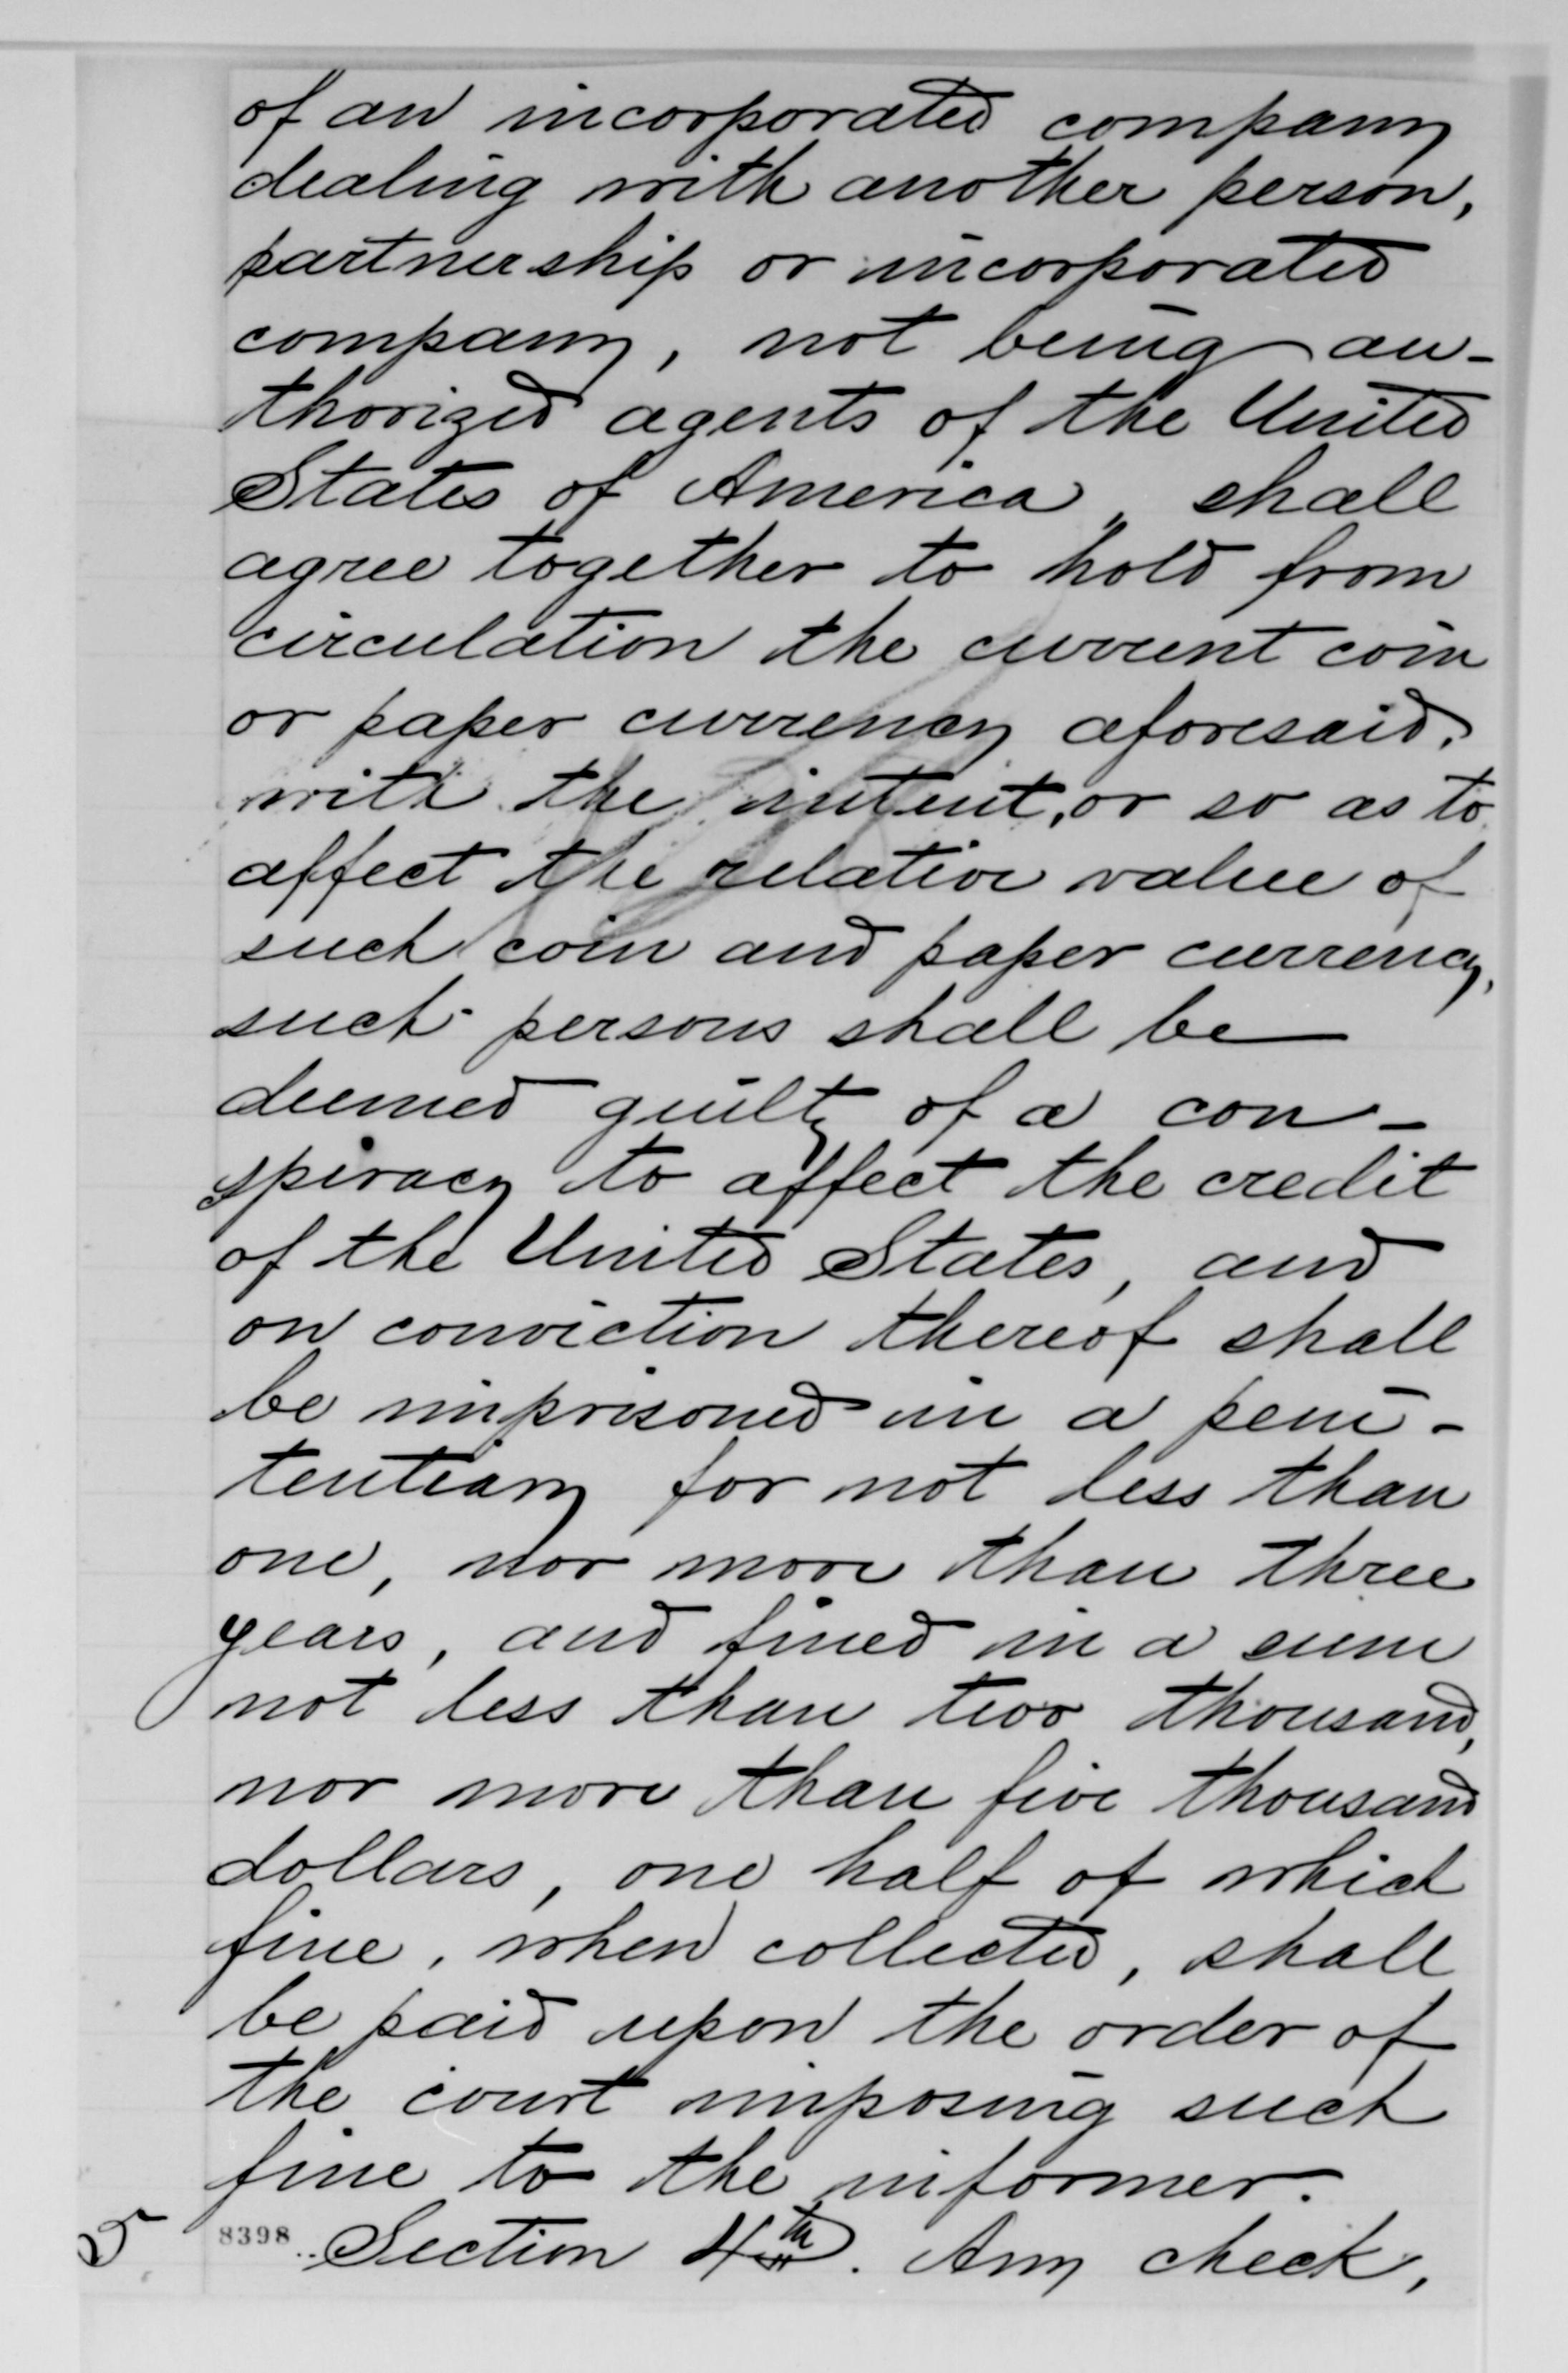 of an incorporated company
dealing with another person,
partnership or incorporated
company, not being au-
thorized agents of the United
States of America, shall
agree together to hold from
circulation the current coin
or paper currency aforesaid,
with the intent, or so as to
affect the relative value of
such coin and paper currency,
such persons shall be
deemed guilty of a con-
spiracy to affect the credit
of the United States, and
on conviction thereof shall
be imprisoned in a peni-
tentiary for not less than
one, nor more than three
years, and fined in a sum
not less than two thousand,
nor more than five thousand
dollars, one half of which
fine, when collected, shall
be paid upon the order of
the court imposing such
fine to the informer.
8398 Section 4th. Any check,